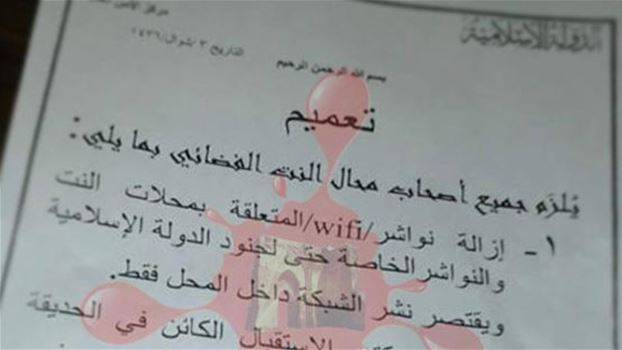 الدولة الإسلامية
مركز الأمن
التاريخ ٣/شوال/١٤٣٦
بسم الله الرحمن الرحيم
تعميم
يُلزَم جميع أصحاب محال النت الفضائي بما يلي:
١- إزالة نواشر/wifi/المتعلقة بمحلات النت
والنواشر الخاصة حتى لجنود الدولة الإسلامية
ويقتصر نشر الشبكة داخل المحل فقط.
الاستقبال الكائن في الحديقة